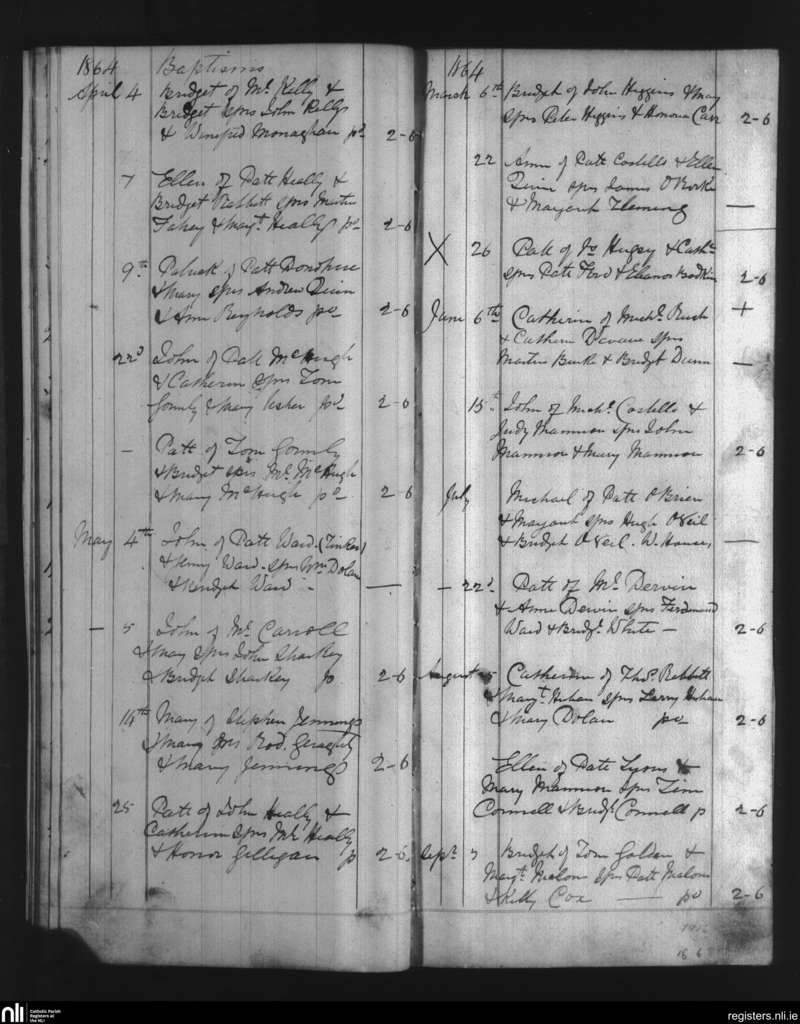 1864 Baptisms
April 4 Bridget of Ml Kelly &
Bridget sprs John Kelly
& Winefred Monaghan pd 2-6
7 Ellen of Patt Heally &
Bridget Rabbit sprs Martin
Fahey & Margt Heally pd 2-6
9th Patrick of Patt Donohue
& Mary sprs Andrew Quin
& Ann Reynolds pd 2-6
22d John of Patt McHugh
& Catherin sprs Tom
Gormly & Mary Usher pd 2-6
- Patt of Tom Gormly
& Bridget sprs Ml McHugh
& Mary McHugh pd 2-6
May 4th John of Patt Ward (Tinker)
& Ward - sprs Wm Dolan
& Bridget Ward - —
- 5 John of Ml Carroll
& Mary sprs John Sharkey
& Bridget Sharkey p 2-6
14th Mary of Stephen Jennings
& Mary sprs Rod. Geraghty
& Mary Jennings 2-6
25 Patt of John Heally &
Catherin sprs Ml Heally
& Honor Gilligan p 2-6
1864
March 6th Bridget of John Higgins & Mary
sprs Peter Higgins & Honour Carr 2-6
22 Ann of Patt Costello & Ellen
Quin sprs James O'Rorke
& Margaret Fleming —
X 26 Patt of & Cath
sprs Patt Ford & Eleanor Bodkin 2-6
June 6th Catherin of Michl Burk +
& Catherin sprs
Martin Burke & Bridget Dunn —
15th John of Michl Costello &
Judy Mannion sprs John
Mannion & Mary Mannion 2-6
July Michael of Patt O'Brien
& Margaret sprs Hugh O'Neil
& Bridget O'Neil. W. House —
- 22d Patt of Ml Dervin
& Anne Dervin sprs Ferdinand
Ward & Bridgt White - 2-6
August 5 Catherin of Thos Rabbitt
& Margt Hohan sprs Larry Hohan
& Mary Dolan pd 2-6
Ellen of Patt Lyons &
Mary Mannion sprs Tim
Connell & Bridgt Connell p 2-6
Sept 3 Bridget of Tom Golden &
Margt Malone sprs Patt Malone
& Kitty Cox — pd 2-6
nli
Catholic Parish
Registers at
the NLI
registers.nli.ie